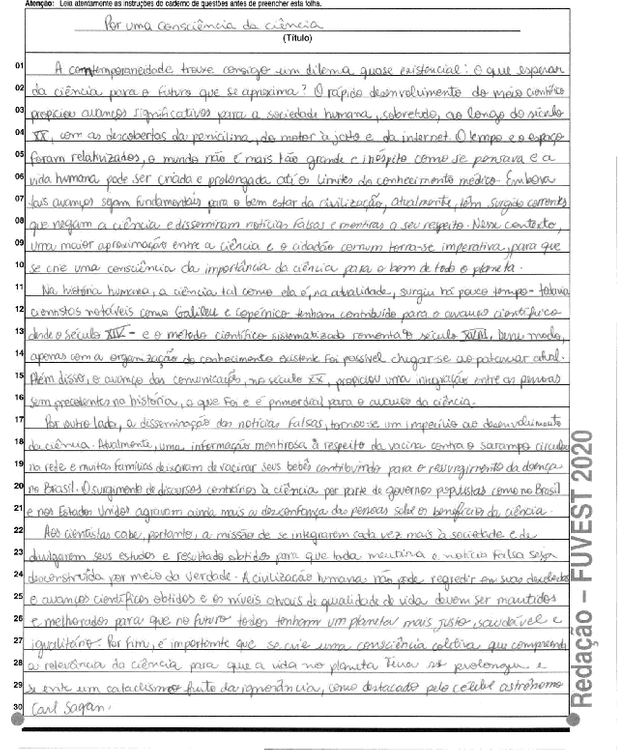 Atenção: Leia atentamente as instruções do caderno de questões antes de preencher esta folha.
Por uma consciência da ciência
(Título)
01 A contemporaneidade trouxe consigo um dilema quase existencial: o que esperar
02 da ciência para o futuro que se aproxima? O rápido desenvolvimento do meio científico
03 propiciou avanços significativos para a sociedade humana, sobretudo, ao longo do século
04 XX, com as descobertas da penicilina, do motor à jato e da internet. O tempo e o espaço
05 foram relativizados, o mundo não é mais tão grande e inóspito como se pensava e a
06 vida humana pode ser criada e prolongada até os limites do conhecimento médico. Embora
07 tais avanços sejam fundamentais para o bem estar da civilização, atualmente, têm surgido correntes
08 que negam a ciência e disseminam notícias falsas e mentiras a seu respeito. Nesse contexto,
09 uma maior aproximação entre a ciência e o cidadão comum torna-se imperativa, para que
10 se crie uma consciência da importância da ciência para o bem de todo o planeta.
11 Na história humana, a ciência tal como ela é, na atualidade, surgiu há pouco tempo - todavia
12 cientistas notáveis como Galileu e Copérnico tenham contribuído para o avanço científico
13 desde o século XIV - e o método científico sistematizado remonta o século XVIII, desse modo,
14 apenas com a organização do conhecimento existente foi possível chegar-se ao patamar atual.
15 Além disso, o avanço das comunicações, no século XX, propiciou uma integração entre as pessoas
16 sem precedentes na história, o que foi e é primordial para o avanço da ciência.
17 Por outro lado, a disseminação das notícias falsas, tornou-se um impecílio ao desenvolvimento
18 da ciência. Atualmente, uma informação mentirosa à respeito da vacina contra o sarampo circulou
19 na rede e muitas famílias deixaram de vacinar seus bebês contribuindo para o ressurgimento da doença
20 no Brasil. O surgimento de discursos contrários à ciência por parte de governos populistas como no Brasil
21 e nos Estados Unidos agravam ainda mais a desconfiança das pessoas sobre os benefícios da ciência.
22 Aos cientistas cabe, portanto, a missão de se integrarem cada vez mais à sociedade e de
23 divulgarem seus estudos e resultado obtidos para que toda mentira e notícia falsa seja
24 desconstruída por meio da verdade. A civilização humana não pode regredir em suas descobertas
25 e avanços científicos obtidos e os níveis atuais de qualidade de vida devem ser mantidos
26 e melhorados para que no futuro todos tenham um planeta mais justo, saudável e
27 igualitário. Por fim, é importante que se crie uma consciência coletiva que compreenda
28 a relevância da ciência para que a vida no planeta Terra se prolongue e
29 se evite um cataclismo fruto da ignorância, como destacado pelo célebre astrônomo
30 Carl Sagan.
Redação – FUVEST 2020